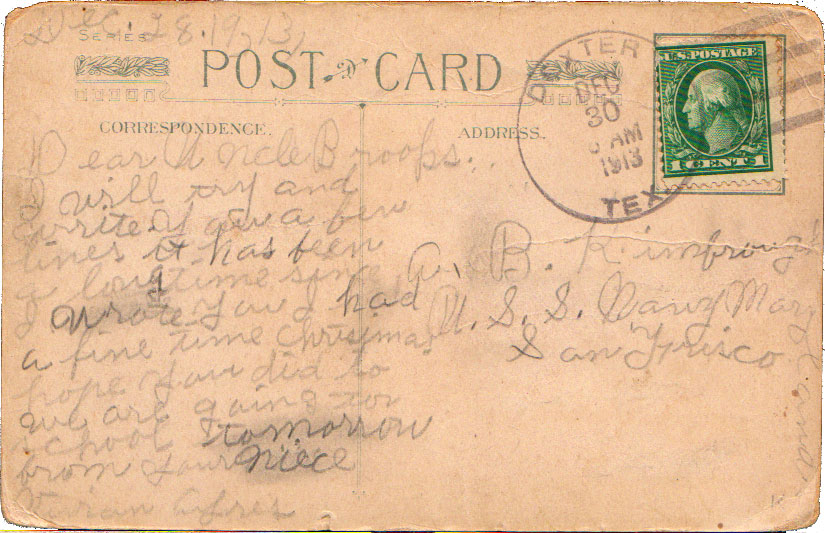 Dec. 28. 1913,
SERIES
POST CARD
CORRESPONDENCE.
ADDRESS.
DEXTER
DEC
30
AM
1913
TEX
U.S. POSTAGE
1 CENT 1
Dear Uncle Broops.
I will try and
write you a few
lines it has been
a longtime since
I
wrote you I had
a fine time Christmas
hope you did to
we are going to
school tomorrow
from your niece
Ayres
A. B. Kimbrough
U. S. S. Navy Maryland
San Frisco